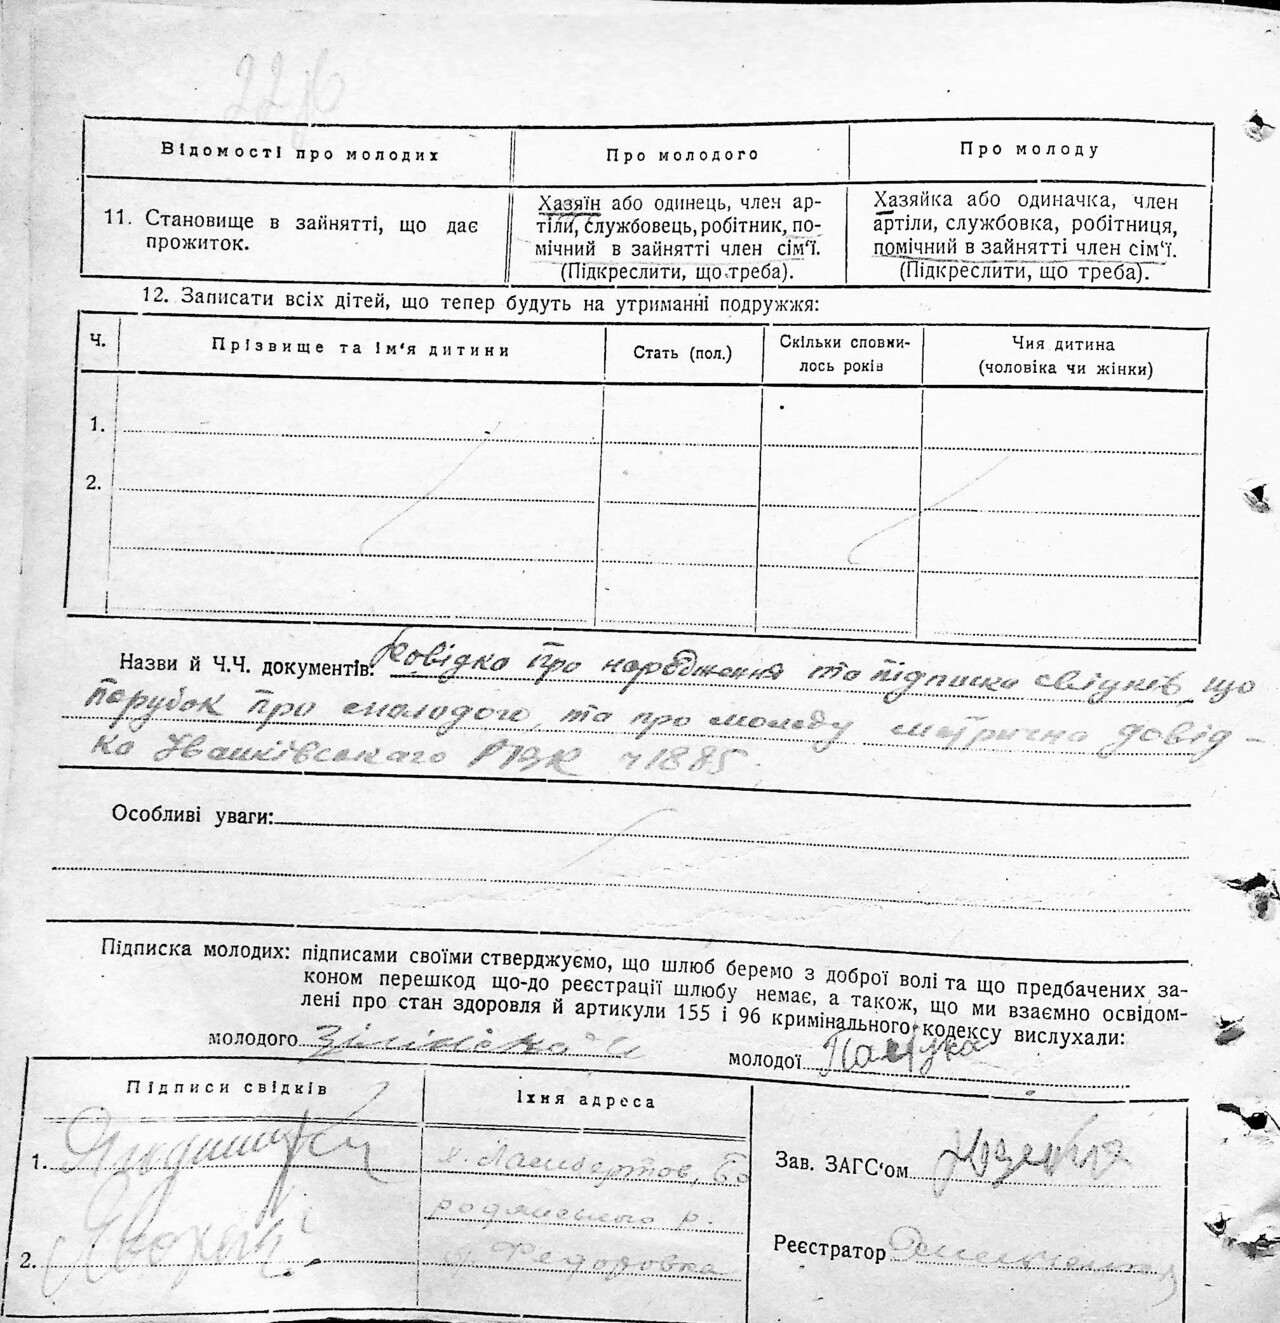 Відомості про молодих
Про молодого
Про молоду
11. Становище в зайнятті, що дає
прожиток.
Хазяїн або одинець, член ар-
тілі, службовець, робітник, по-
мічний в зайнятті член сім'ї.
(Підкреслити, що треба).
Хазяйка або одиначка, член
артілі, службовка, робітниця,
помічний в зайнятті член сім'ї.
(Підкреслити, що треба).
12. Записати всіх дітей, що тепер будуть на утриманні подружжя:
Ч.
Прізвище та ім'я дитини
Стать (пол.)
Скільки сповни-
лось років
Чия дитина
(чоловіка чи жінки)
1.
2.
Назви й Ч.Ч. документів: Довідка про народження та підписка свідків, що
парубок про молодого, та про молоду метрична довід-
ка Іванківського РВК ч 1885
Особливі уваги:
Підписка молодих: підписами своїми стверджуємо, що шлюб беремо з доброї волі та що предбачених за-
коном перешкод що-до реєстрації шлюбу немає, а також, що ми взаємно освідом-
лені про стан здоровля й артикули 155 і 96 кримінального кодексу вислухали:
молодого
молодої
Підписи свідків
Їхня адреса
1.
Бо
родянського р.
2.
Федоровка
Зав. ЗАГС'ом
Реєстратор